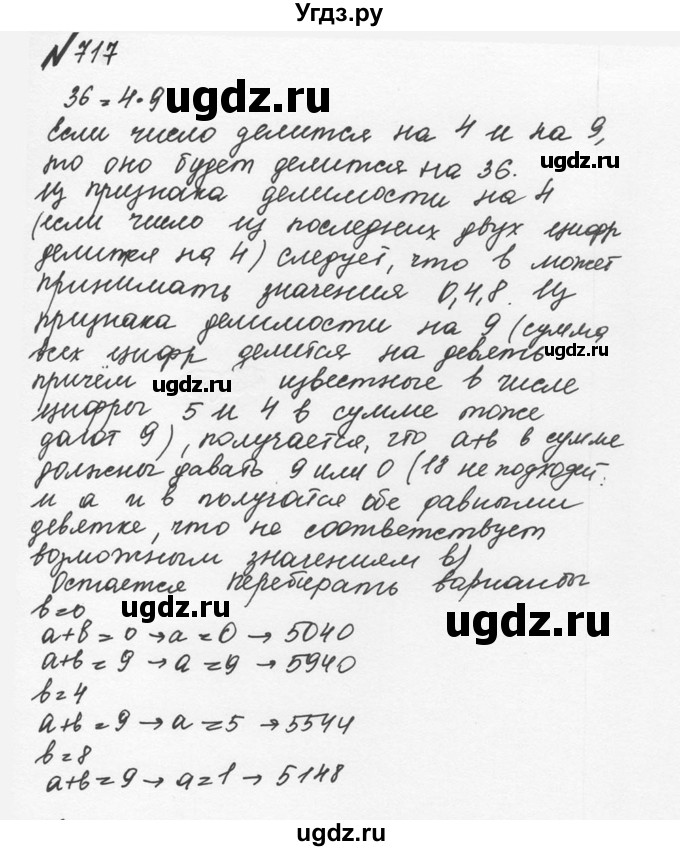 Угдз.ру
№ 717
36 = 4 · 9 ugdz.ru
Если число делится на 4 и на 9,
то оно будет делится на 36. ugdz.ru
Из признака делимости на 4
(если число из последних двух цифр
делится на 4) следует, что в может
принимать значения 0,4,8. Из
признака делимости на 9 (сумма
всех цифр делится на девять ugdz.ru
причём ugdz.ru известные в числе
цифры 5 и 4 в сумме тоже
дают 9), получается, что а+в в сумме
должны давать 9 или 0 (18 не подходит:
и а и в получатся обе равными
девятке, что не соответствует
возможным значениям в)
Остается перебирать варианты
в=0 ugdz.ru
а+в=0→а=0→5040 ugdz.ru
а+в=9→а=9→5940
в=4
а+в=9→а=5→5544 ugdz.ru
в=8
а+в=9→а=1→5148 ugdz.ru
ugdz.ru